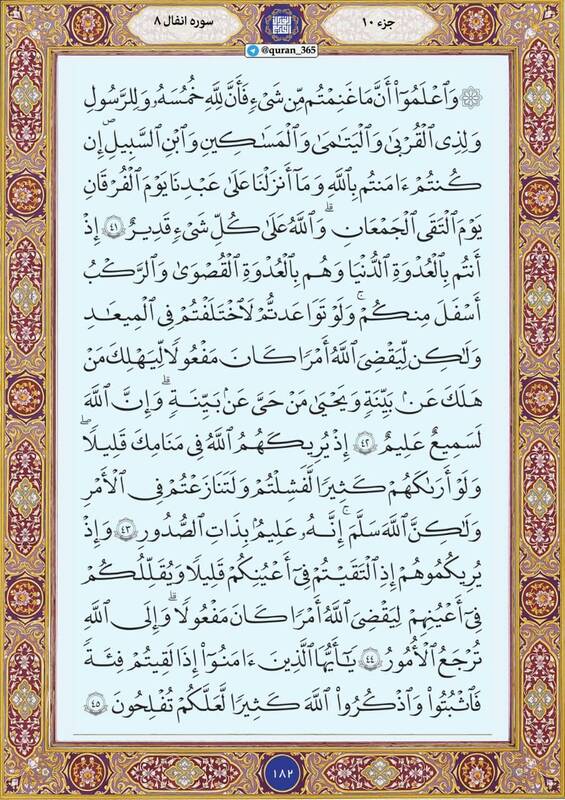 جزء ۱۰
سوره انفال ۸
@quran_365
۞ وَٱعۡلَمُوٓاْ أَنَّمَا غَنِمۡتُم مِّن شَيۡءٖ فَأَنَّ لِلَّهِ خُمُسَهُۥ وَلِلرَّسُولِ
وَلِذِي ٱلۡقُرۡبَىٰ وَٱلۡيَتَٰمَىٰ وَٱلۡمَسَٰكِينِ وَٱبۡنِ ٱلسَّبِيلِ إِن
كُنتُمۡ ءَامَنتُم بِٱللَّهِ وَمَآ أَنزَلۡنَا عَلَىٰ عَبۡدِنَا يَوۡمَ ٱلۡفُرۡقَانِ
يَوۡمَ ٱلۡتَقَى ٱلۡجَمۡعَانِۗ وَٱللَّهُ عَلَىٰ كُلِّ شَيۡءٖ قَدِيرٌ ٤١ إِذۡ
أَنتُم بِٱلۡعُدۡوَةِ ٱلدُّنۡيَا وَهُم بِٱلۡعُدۡوَةِ ٱلۡقُصۡوَىٰ وَٱلرَّكۡبُ
أَسۡفَلَ مِنكُمۡۚ وَلَوۡ تَوَاعَدتُّمۡ لَٱخۡتَلَفۡتُمۡ فِي ٱلۡمِيعَٰدِ
وَلَٰكِن لِّيَقۡضِيَ ٱللَّهُ أَمۡرٗا كَانَ مَفۡعُولٗا لِّيَهۡلِكَ مَنۡ
هَلَكَ عَنۢ بَيِّنَةٖ وَيَحۡيَىٰ مَنۡ حَيَّ عَنۢ بَيِّنَةٖۗ وَإِنَّ ٱللَّهَ
لَسَمِيعٌ عَلِيمٌ ٤٢ إِذۡ يُرِيكَهُمُ ٱللَّهُ فِي مَنَامِكَ قَلِيلٗاۖ
وَلَوۡ أَرَىٰكَهُمۡ كَثِيرٗا لَّفَشِلۡتُمۡ وَلَتَنَٰزَعۡتُمۡ فِي ٱلۡأَمۡرِ
وَلَٰكِنَّ ٱللَّهَ سَلَّمَۚ إِنَّهُۥ عَلِيمُۢ بِذَاتِ ٱلصُّدُورِ ٤٣ وَإِذۡ
يُرِيكُمُوهُمۡ إِذِ ٱلۡتَقَيۡتُمۡ فِيٓ أَعۡيُنِكُمۡ قَلِيلٗا وَيُقَلِّلُكُمۡ
فِيٓ أَعۡيُنِهِمۡ لِيَقۡضِيَ ٱللَّهُ أَمۡرٗا كَانَ مَفۡعُولٗاۗ وَإِلَى ٱللَّهِ
تُرۡجَعُ ٱلۡأُمُورُ ٤٤ يَٰٓأَيُّهَا ٱلَّذِينَ ءَامَنُوٓاْ إِذَا لَقِيتُمۡ فِئَةٗ
فَٱثۡبُتُواْ وَٱذۡكُرُواْ ٱللَّهَ كَثِيرٗا لَّعَلَّكُمۡ تُفۡلِحُونَ ٤٥
۱۸۲